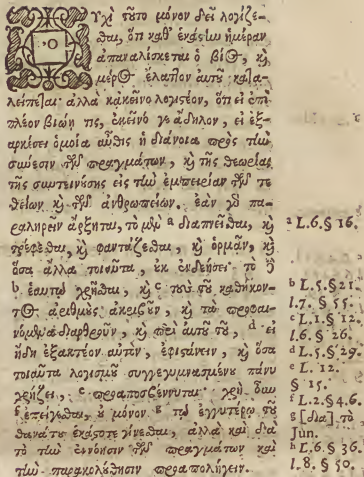 Οὐχὶ τῦτο μόνον δεῖ λογίζε-
σθαι, ὅτι καθ' ἑκάστην ἡμέραν
ἀπαναλίσκεται ὁ βίος, καὶ
μέρος ἔλαττον αὐτῦ κατα-
λείπεται· ἀλλὰ κἀκεῖνο λογιστέον, ὅτι εἰ ἐπὶ
πλέον βιῴη τις, ἐκεῖνό γε ἄδηλον, εἰ ἐξ-
αρκέσει ὁμοία αὖθις ἡ διάνοια πρὸς τὴν
σύνεσιν τῶν πραγμάτων, καὶ τῆς θεωρίας
τῆς συντεινύσης εἰς τὴν ἐμπειρίαν τῶν τε
θείων καὶ τῶν ἀνθρωπείων. ἐὰν γὸ πα-
ραληρεῖν ἄρξηται, τὸ μὲν a διαπνεῖσθαι, καὶ a L.6.§ 16.
τρέφεσθαι, καὶ φαντάζεσθαι, καὶ ὁρμᾶν, καὶ
ὅσα ἄλλα τοιαῦτα, ὐκ ἐνδεήσει· τὸ δὲ
b ἑαυτῷ χρῆσθαι, καὶ c τοὺς τῦ καθήκον- b L.5.§21.
τος ἀριθμὺς ἀκριβῦν, καὶ τὰ προφαι- l.7. § 55.
νόμενα διαρθρῦν, καὶ περὶ αὐτῦ τῦ, d εἰ c L.1.§ 12.
ἤδη ἐξακτέον αὑτὸν, ἐφιστάνειν, καὶ ὅσα l.6.§ 26.
τοιαῦτα λογισμῦ συγγεγυμνασμένυ πάνυ d L.5.§ 29.
χρῄζει, e προαποσβέννυται· χρὴ ὖν e L. 12.
f ἐπείγεσθαι, ὐ μόνον g τῷ ἐγγυτέρω τῦ § 15.
θανάτυ ἑκάστοτε γίνεσθαι, ἀλλὰ καὶ διὰ f L.2.§4.6.
τὸ τὴν ἐννόησιν τῶν πραγμάτων καὶ g [δια] τὸ Jun.
τὴν παρακολύθησιν προαπολήγειν. h L.6.§ 36. l.8. § 50.